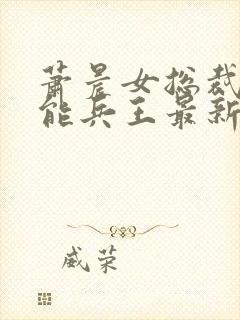 萧晨女总裁
能兵王最新
威荣